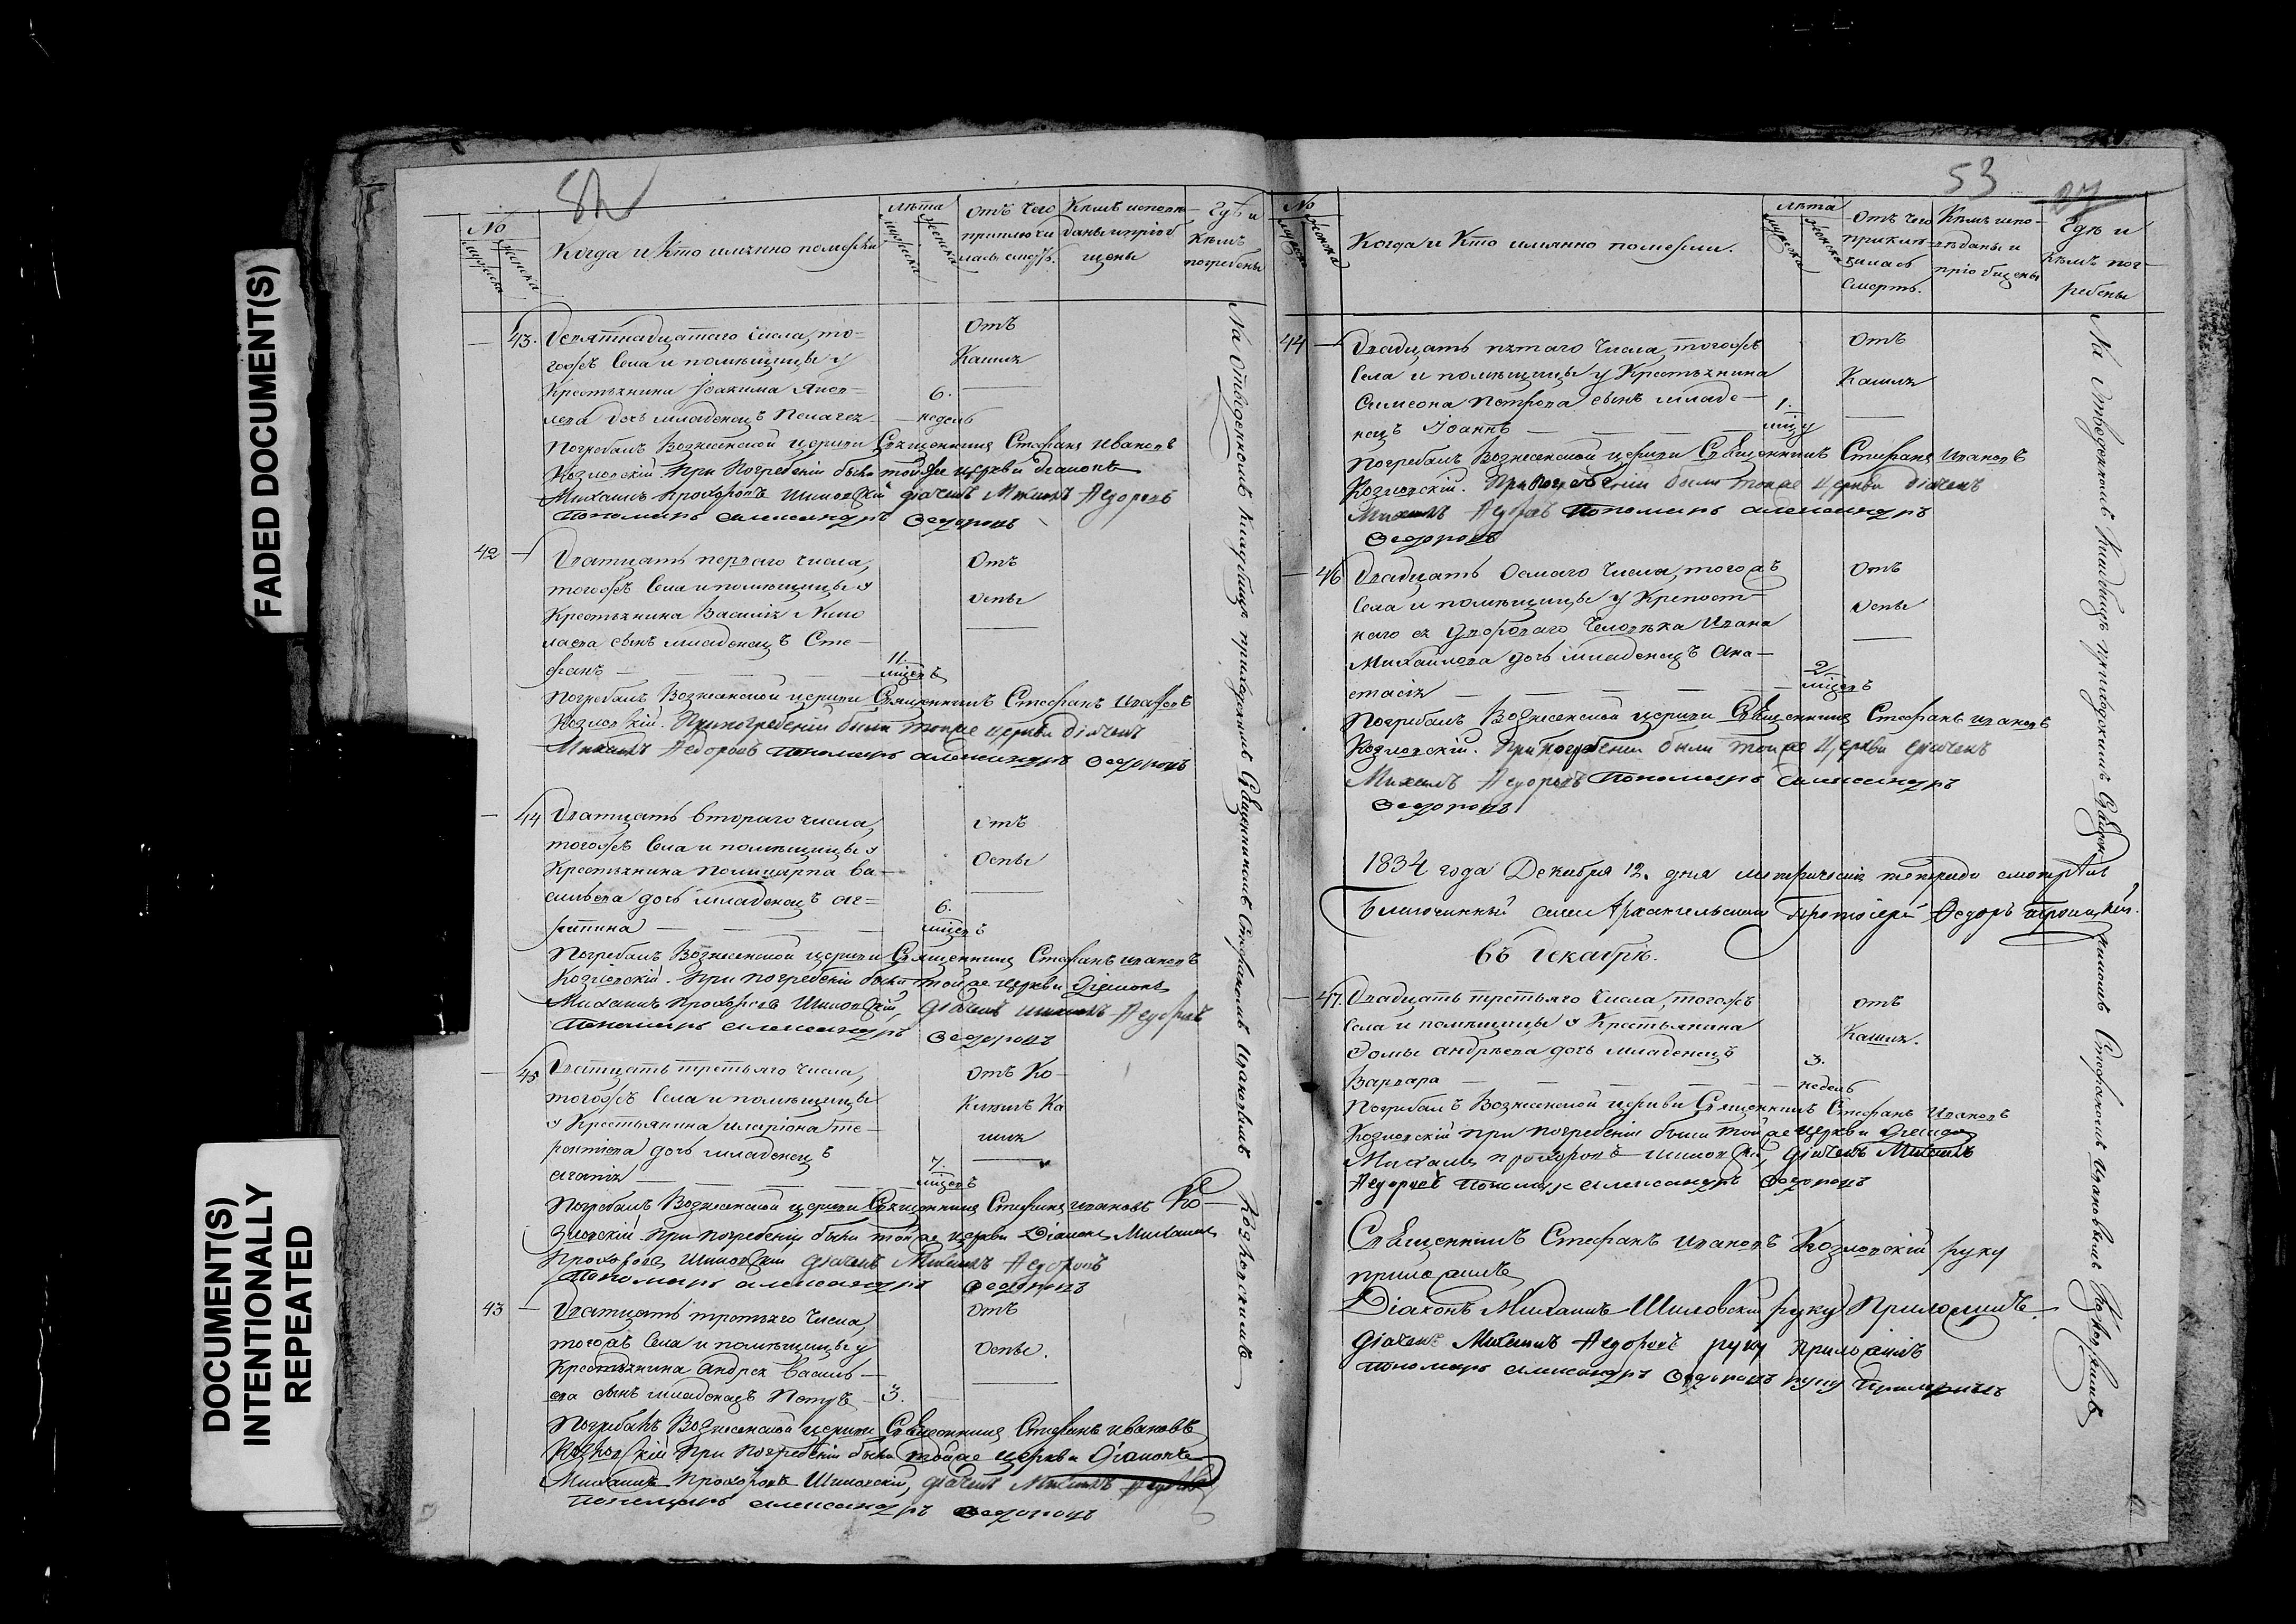 FADED DOCUMENT(S)
DOCUMENT(S)
INTENTIONALLY
REPEATED
№
мужеска
женска
Когда и Кто имянно померли
лѣта
мужеска
женска
Отъ чего
приключи
лась смерть.
Кѣмъ исповѣ-
даны и приоб
щены
Гдѣ и
Кѣмъ
погребены
— 43. Девятнадцатаго числа, то-
гожъ Села и помѣщицы у
Крестьянина Іоакима Яков-
лева дочь младенецъ Пелагея
6.
недель
Отъ
Кашля
Погребалъ Вознесенской церкви Священникъ Стефанъ Ивановъ
Козловскій. При Погребеніи были тойже церкви діаконъ
Михаилъ Прохоровъ Шиловскій дїачекъ Михаилъ Федоровъ
Пономарь Александръ Федоровъ
42 — Дватцать перваго числа,
тогожъ Села и помѣщицы у
Крестьянина Василія Нико
лаева сынъ младенецъ Сте-
фанъ
11.
мцовъ
Отъ
Оспы
Погребалъ Вознесенской церкви Священникъ Стефанъ Ивановъ
Козловскій. При погребеніи были тойже церкви дїачекъ
Михаилъ Федоровъ Пономарь Александръ Федоровъ
— 44 Дватцать втораго числа,
тогожъ Села и помѣщицы у
Крестьянина Поликарпа Ва-
сильева дочь младенецъ Аг=
рипина
6.
мцовъ
Отъ
Оспы
Погребалъ Вознесенской церкви Священникъ Стефанъ Ивановъ
Козловскій. При погребеніи были тойже церкви Діаконъ
Михаилъ Прохоровъ Шиловскій, дїачекъ Михаилъ Федоровъ
Пономарь Александръ Федоровъ
— 45 Дватцать третьяго числа,
тогожъ Села и помѣщицы
у Крестьянина Иларіона Те-
рентьева дочь младенецъ
Агафія
7.
мцовъ
Отъ Ко-
Кашля
Погребалъ Вознесенской церкви Священникъ Стефанъ Ивановъ Ко-
зловскій. При погребеніи были тойже церкви Діаконъ Михаилъ
Прохоровъ Шиловскій дїачекъ Михаилъ Федоровъ
Пономарь Александръ Федоровъ
43 — Дватцать третьяго числа,
тогожъ Села и помѣщицы у
Крестьянина Андрея Василь-
ева сынъ младенецъ Петръ — 3.
Отъ
Оспы.
Погребалъ Вознесенской церкви Священникъ Стефанъ Ивановъ
Козловскій При погребеніи были тойже церкви Діаконъ
Михаилъ Прохоровъ Шиловскій, дїачекъ Михаилъ Федоровъ
Пономарь Александръ Федоровъ
На отведенномъ кладбищѣ приходскимъ Священникомъ Стефаномъ Ивановымъ Козловскимъ
53
№
мужеска
женска
Когда и Кто имянно померли.
лѣта
мужеска
женска
Отъ чего
приклю-
чилась
Смерть.
Кѣмъ испо-
вѣданы и
пріобщены
Гдѣ и
Кѣмъ пог-
ребены
44 — Двадцать пятаго числа, тогожъ
Села и помѣщицы у Крестьянина
Симеона Петрова сынъ младе-
нецъ Іоаннъ
1.
мцу
Отъ
Кашля
Погребалъ Вознесенской церкви Священникъ Стефанъ Ивановъ
Козловскій. При погребеніи были тойже Церкви дїачекъ
Михаилъ Федоровъ Пономарь Александръ
Федоровъ
— 46 Двадцать Осмаго числа, тогожъ
Села и помѣщицы у Крепост-
наго ея двороваго человѣка Ивана
Михайлова дочь младенецъ Ана-
стасія
2
мцовъ
Отъ
Оспы
Погребалъ Вознесенской церкви Священникъ Стефанъ Ивановъ
Козловскій. При погребеніи были тойже Церкви дїачекъ
Михаилъ Федоровъ Пономарь Александръ
Федоровъ
1834 года Декабря 12. дня метрическія тетради смотрѣлъ
Благочинный Архангельскій Протоіерей Федоръ
Въ Декабрѣ.
— 47. Двадцать третьяго числа, тогожъ
Села и помѣщицы у Крестьянина
Фомы Андрѣева дочь младенецъ
Варвара
3.
недель
Отъ
Кашля.
Погребалъ Вознесенской церкви Священникъ Стефанъ Ивановъ
Козловскій при погребеніи были тойже церкви Діаконъ
Михаилъ Прохоровъ Шиловскій, дїачекъ Михаилъ
Федоровъ Пономарь Александръ Федоровъ
Священникъ Стефанъ Ивановъ Козловскій руку
приложилъ
Діаконъ Михаилъ Шиловскій руку Приложилъ.
дїачекъ Михаилъ Федоровъ руку приложилъ
Пономарь Александръ Федоровъ руку Приложилъ
На отведенномъ кладбищѣ приходскимъ Священникомъ Стефаномъ Ивановымъ Козловскимъ